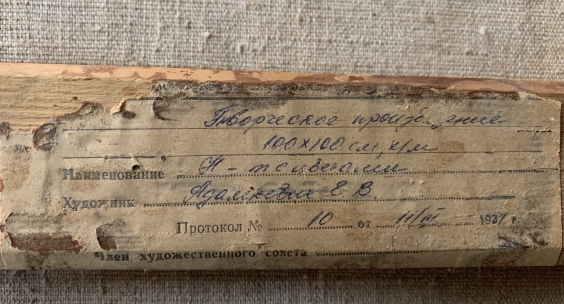 Творческое произведение
100х100 см. х/м
Наименование Н-т с цветами
Художник Е. В.
Протокол № 10 от 11/III 193 г.
Член художественного совета